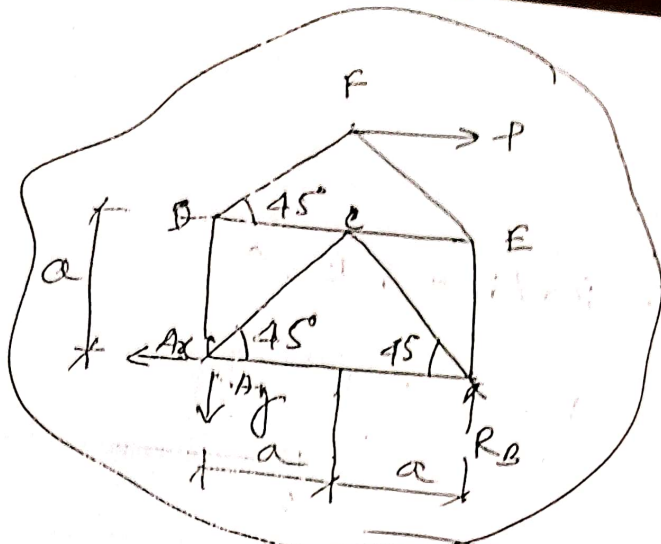 F
P
D 45° C
E
a
Ax 45° 45
Ay
R_B
a a